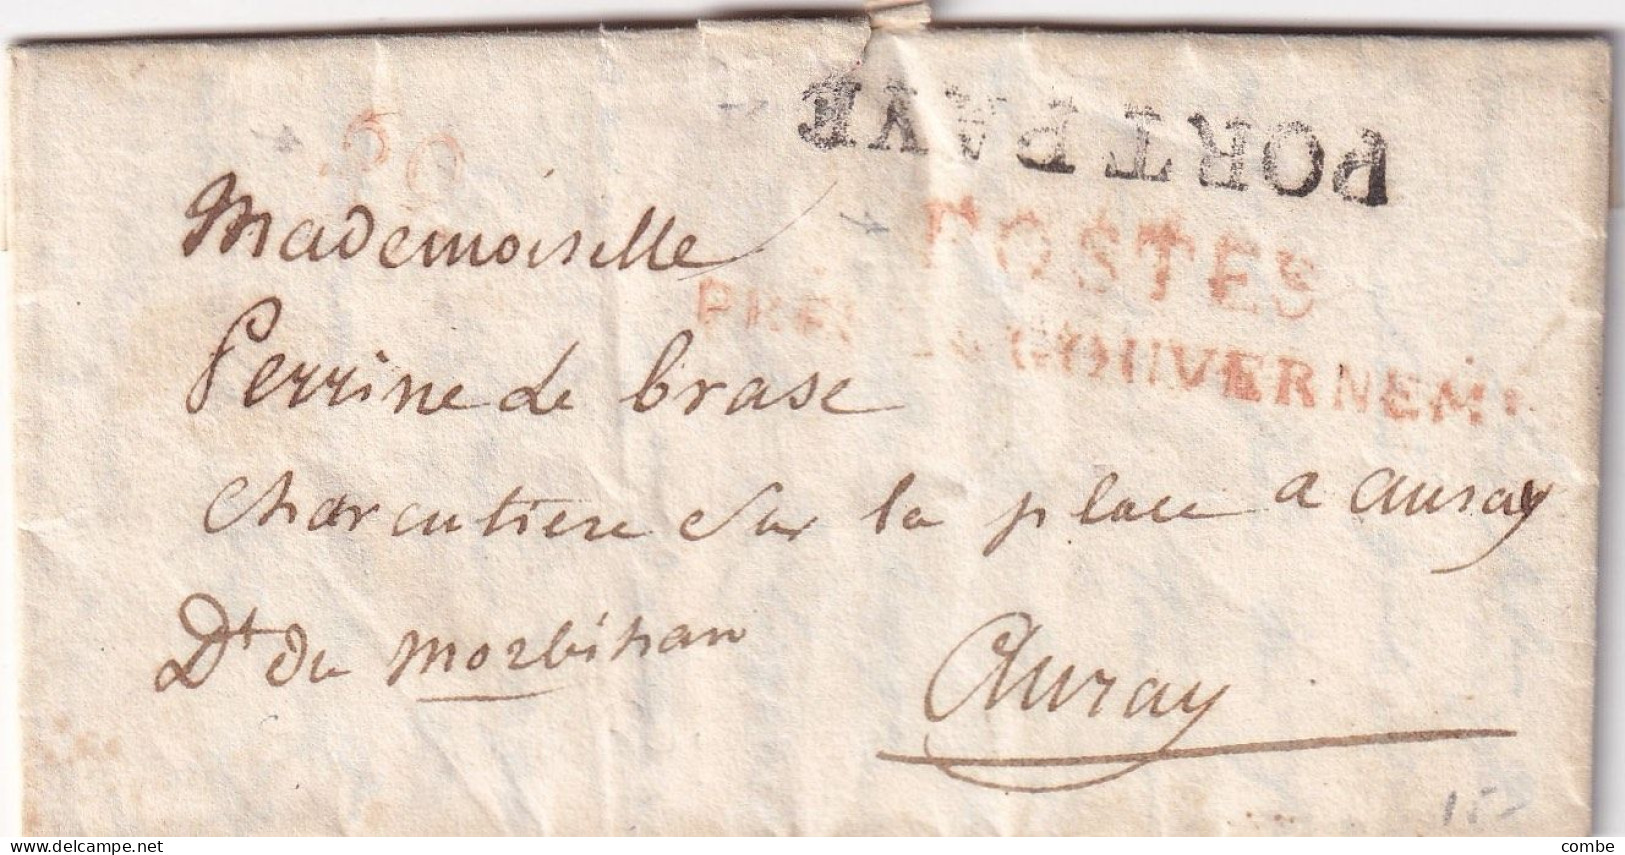 PORT PAYE
50
POSTES
PRES LE GOUVERNEMT
Mademoiselle
Perrine Le brase
charcutiere Sur la place a auray
Dt du Morbihan
Auray
150
delcampe.net
combe